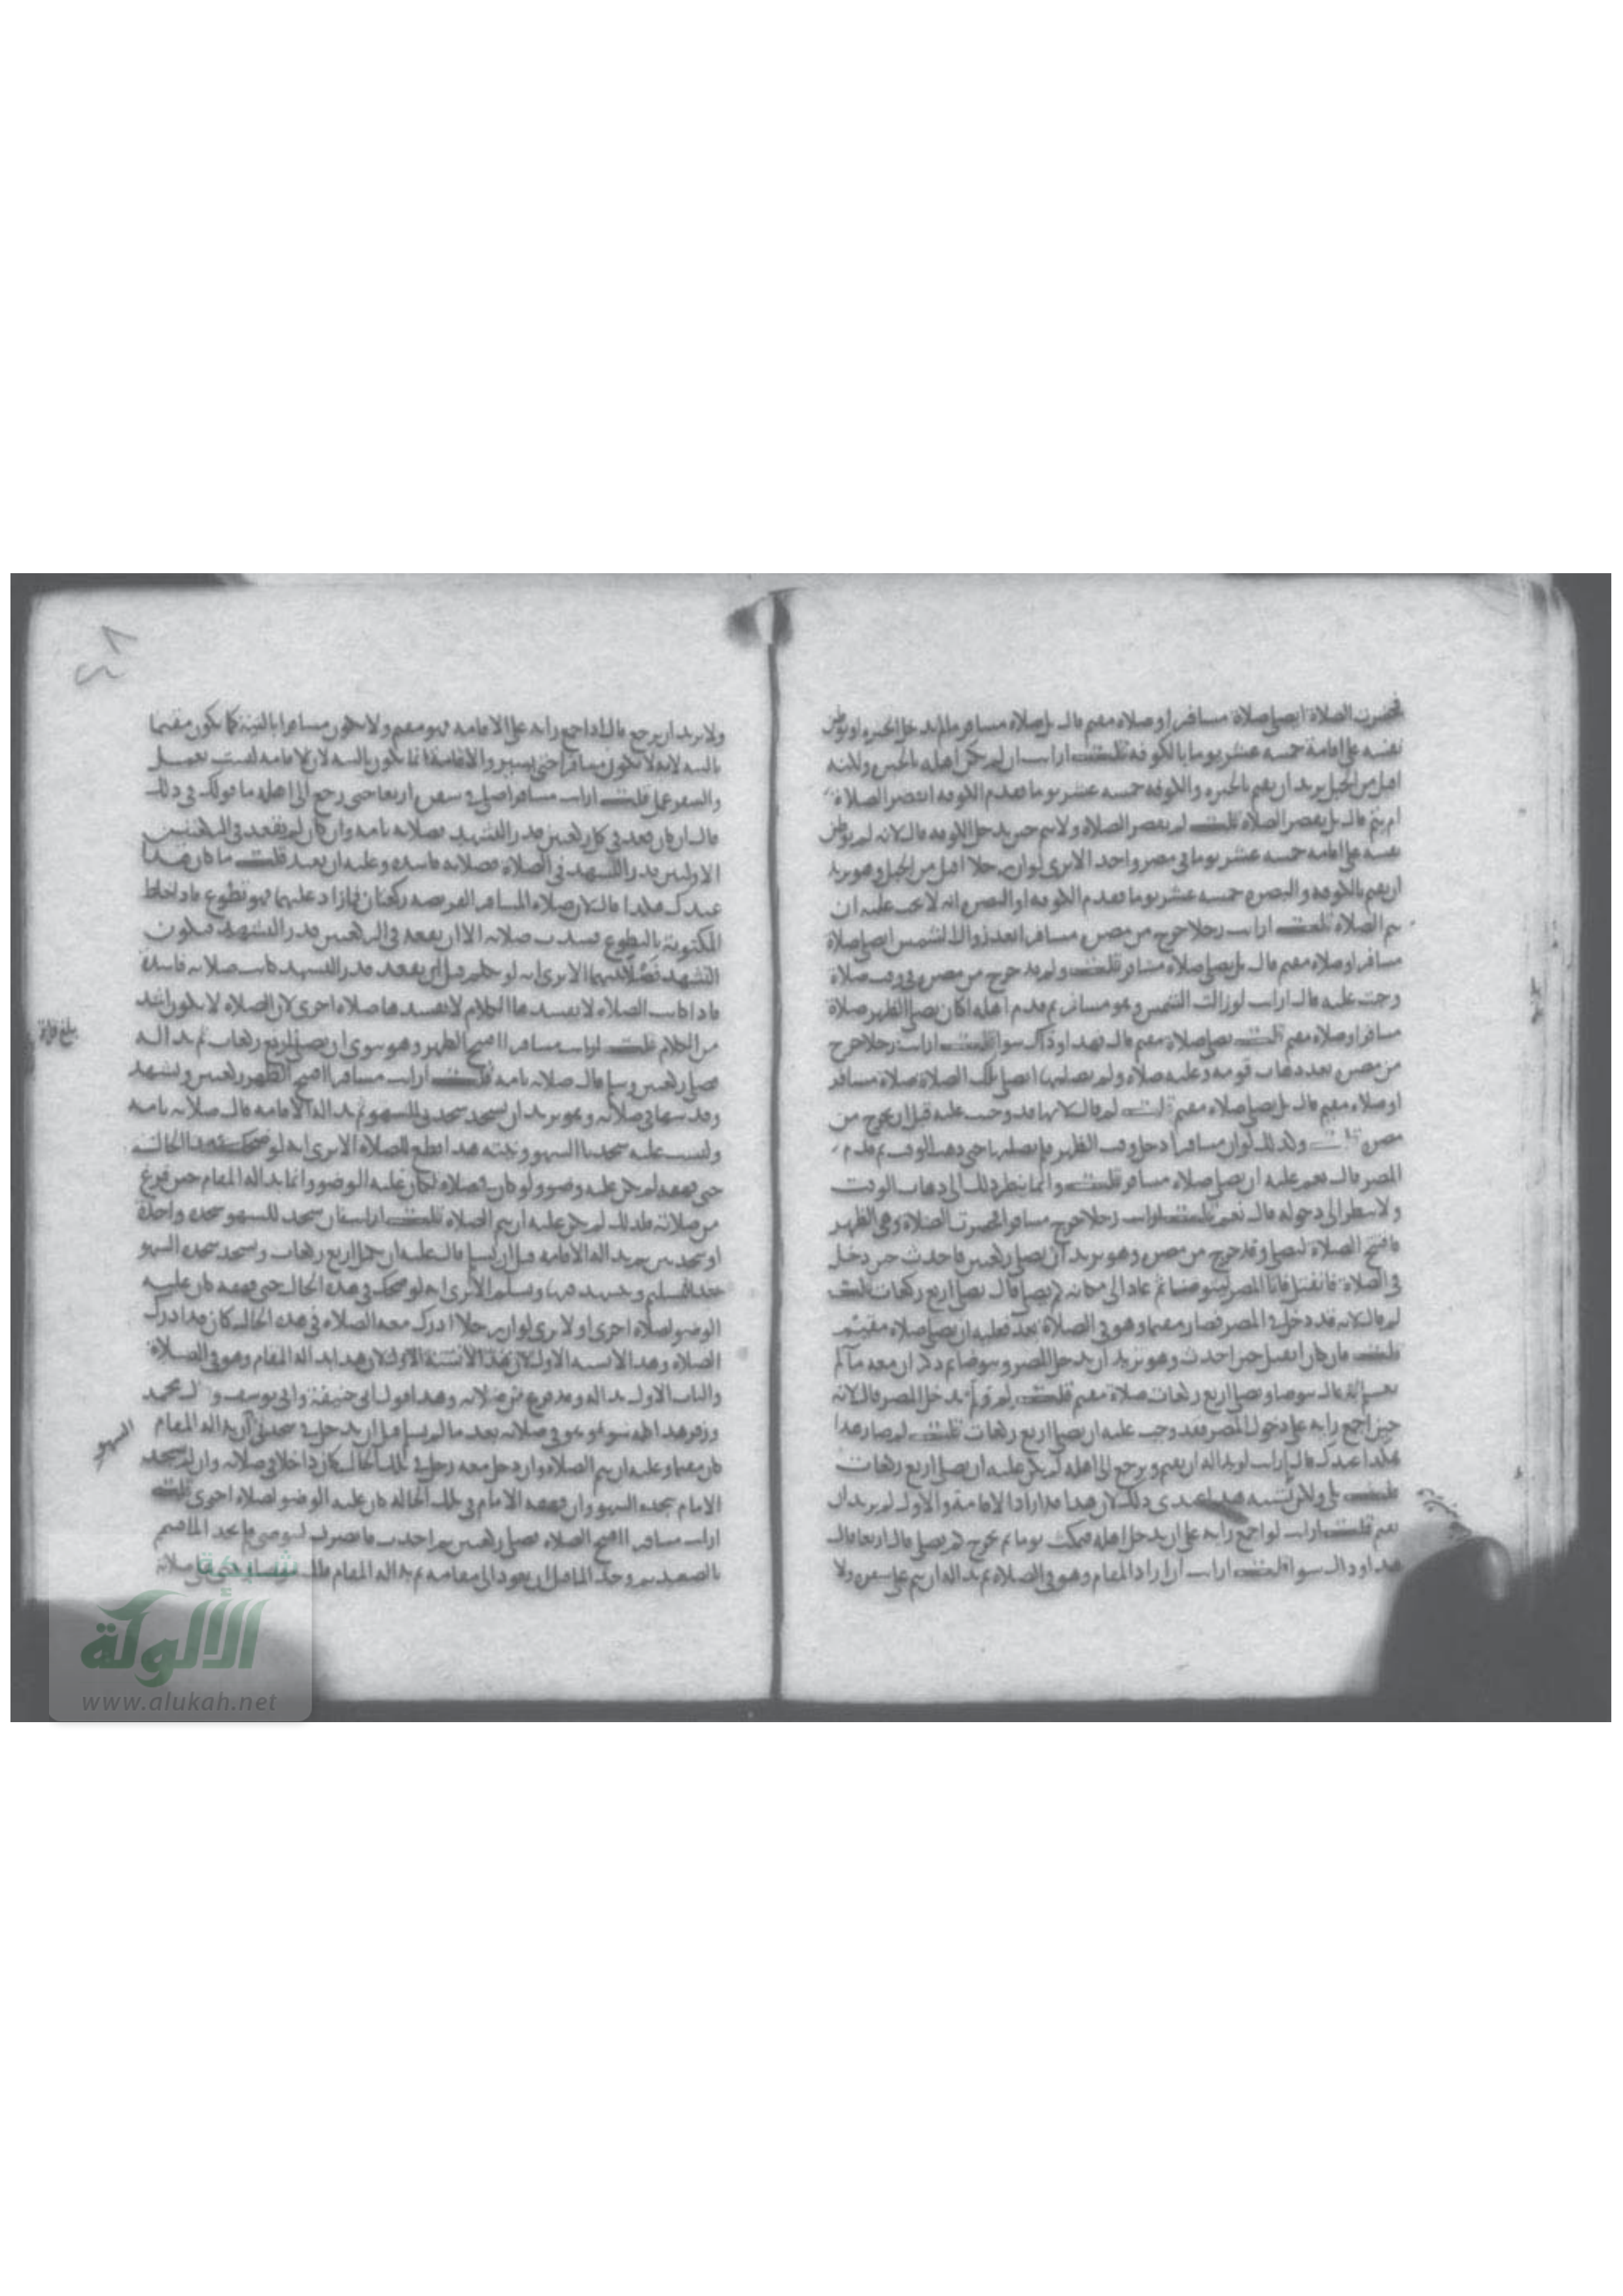 فحضرت الصلاة ايصلي صلاة مسافر او صلاة مقيم قال بل صلاة مسافر ما لم يدخل الحيره او يوطن
نفسه على اقامة خمسة عشر يوما بالكوفه قلت ارايت ان لم يكن اهله بالحيره ولكنه
اقبل من الجبل يريد ان يقيم بالحيره والكوفه خمسه عشر يوما فقدم الكوفه ايقصر الصلاة
ام يتم قال بل يقصر الصلاة قلت لم يقصر الصلاة ولا يتم حين يدخل الكوفه قال لانه لم يوطن
نفسه على اقامه خمسه عشر يوما في مصر واحد الا ترى لو ان رجلا اقبل من الجبل وهو يريد
ان يقيم بالكوفه والبصره خمسه عشر يوما فقدم الكوفه او البصره انه لا يجب عليه ان
يتم الصلاة قلت ارايت رجلا خرج من مصره مسافرا بعد زوال الشمس ايصلي صلاة
مسافر او صلاة مقيم قال بل يصلي صلاة مسافر قلت ولم وقد خرج من مصره في وقت صلاة
وجبت عليه قال ارايت لو زالت الشمس وهو مسافر ثم قدم اهله اكان يصلي الظهر صلاة
مسافر او صلاه مقيم قلت يصلي صلاة مقيم قال فهذا وذاك سوا قلت ارايت رجلا خرج
من مصره بعد ذهاب وقتها وعليه صلاة ولم يصلها ايصلي تلك الصلاة صلاة مسافر
او صلاه مقيم قال بل يصلي صلاه مقيم قلت لم قال لانها قد وجبت عليه قبل ان يخرج من
مصره قلت وكذلك لو ان مسافرا دخل وقت الظهر فلم يصلها حتى ذهب الوقت ثم قدم
المصر قال نعم عليه ان يصلي صلاه مسافر قلت وانما ينظر في ذلك الى ذهاب الوقت
ولا ينظر الى دخوله قال نعم قلت ارايت رجلا خرج مسافرا فحضرت الصلاة وهي الظهر
فافتتح الصلاة ليصلي وقد خرج من مصره وهو يريد ان يصلي ركعتين فاحدث حين دخل
في الصلاة فانفتل فاتا المصر ليتوضا ثم عاد الى مكانه كم يصلي قال يصلي اربع ركعات قلت
لم قال لانه قد دخل المصر فصار مقيما وهو في الصلاة بعد فعليه ان يصلي صلاه مقيم
قلت فان كان انفتل حين احدث وهو يريد ان يدخل المصر ويتوضا ثم ذكر ان معه ماء
قال يتوضا ويصلي اربع ركعات صلاة مقيم قلت لم ولم يدخل المصر قال لانه
حين اجمع رايه على دخول المصر فقد وجب عليه ان يصلي اربع ركعات قلت لم صار هذا
هكذا عندك قال ارايت لو بدا له ان يقيم ويرجع الى اهله لم يكن عليه ان يصلي اربع ركعات
قلت بلى ولا يشبه هذا عندي ذلك لان هذا قد اراد الاقامة والاول لم يرد ان
يقيم قلت ارايت لو اجمع رايه على ان يدخل اهله فيمكث يوما ثم يخرج كم يصلي قال اربعا قال
هذا وذاك سوا قلت ارايت ان اراد المقام وهو في الصلاة ثم بدا له ان يتم على سفره ولا
ولا يريد ان يرجع قال اذا اجمع رايه على الاقامه فهو مقيم ولا يكون مسافرا بالنية كما يكون مقيما
بالنيه لانه لا يكون مسافرا حتى يسير والاقامة انما تكون بالنيه لان الاقامه ليست بعمل
والسفر عمل قلت ارايت مسافرا صلى في سفره اربعا اربعا حتى رجع الى اهله ما قولك في ذلك
قال ان كان قعد في كل ركعتين قدر التشهد فصلاته تامه وان كان لم يقعد في الركعتين
الاوليين قدر التشهد في الصلاة فصلاته فاسده وعليه ان يعيد قلت ما كان هذا
عندك هكذا قال لان صلاه المسافر الفريضه ركعتان فما زاد عليها فهو تطوع فاذا خلط
المكتوبة بالتطوع فسدت صلاته الا ان يقعد في الركعتين قدر التشهد فيكون
التشهد فصلا بينهما الا ترى انه لو تكلم قبل ان يقعد قدر التشهد كانت صلاته فاسدة
فاذا كانت الصلاه لا يفسدها الكلام لا تفسدها صلاه اخرى لان الصلاه لا تكون اشد
من الكلام قلت ارايت مسافرا افتتح الظهر وهو ينوي ان يصلي اربع ركعات ثم بدا له
فصلى ركعتين وسلم قال صلاته تامه قلت ارايت مسافرا افتتح الظهر ركعتين وتشهد
وقد سها في صلاته وهو يريد ان يسجد سجدتي السهو ثم بدا له الاقامه قال صلاته تامه
وليست عليه سجدتا السهو ونيته هذا قطع للصلاة الا ترى انه لو ضحك في هذه الحالة
حتى قهقه لم يكن عليه وضوء ولو كان في صلاة لكان عليه الوضوء وانما بدا له المقام حين فرغ
من صلاته فلذلك لم يكن عليه ان يتم الصلاة قلت ارايت ان سجد للسهو سجده واحدة
او سجدتين ثم بدا له الاقامه قبل ان يسلم قال عليه ان يكمل اربع ركعات ويسجد سجدتي السهو
بعد التسليم ويتشهد فيها ويسلم الا ترى انه لو ضحك في هذه الحال حتى قهقه كان عليه
الوضوء لصلاة اخرى او لا ترى لو ان رجلا ادرك معه الصلاه في هذه الحاله كان قد ادرك
الصلاه وهذا لا يشبه الاول لان هذا بدا له المقام وهو في الصلاة
والباب الاول بدا له وقد فرغ من صلاته وهذا قول ابي حنيفة وابي يوسف وقال محمد
وزفر هذا كله سوا وهو في صلاته بعد ما لم يسلم قبل ان يدخل في سجدتي ان بدا له المقام
كان مقيما وعليه ان يتم الصلاه وان دخل معه رجل في تلك الحال كان داخلا في صلاته وان لم يسجد
الامام سجدة السهو وان قهقه الامام في تلك الحاله كان عليه الوضوء لصلاة اخرى قلت
ارايت مسافرا افتتح الصلاه فصلى ركعتين ثم احدث فانصرف ليتوضا فلم يجد الماء فتيمم
بالصعيد ثم وجد الماء قبل ان يعود الى مقامه ثم بدا له المقام قال يتوضا
بلغ قراة
السهو
شبكة
الألوكة
www.alukah.net